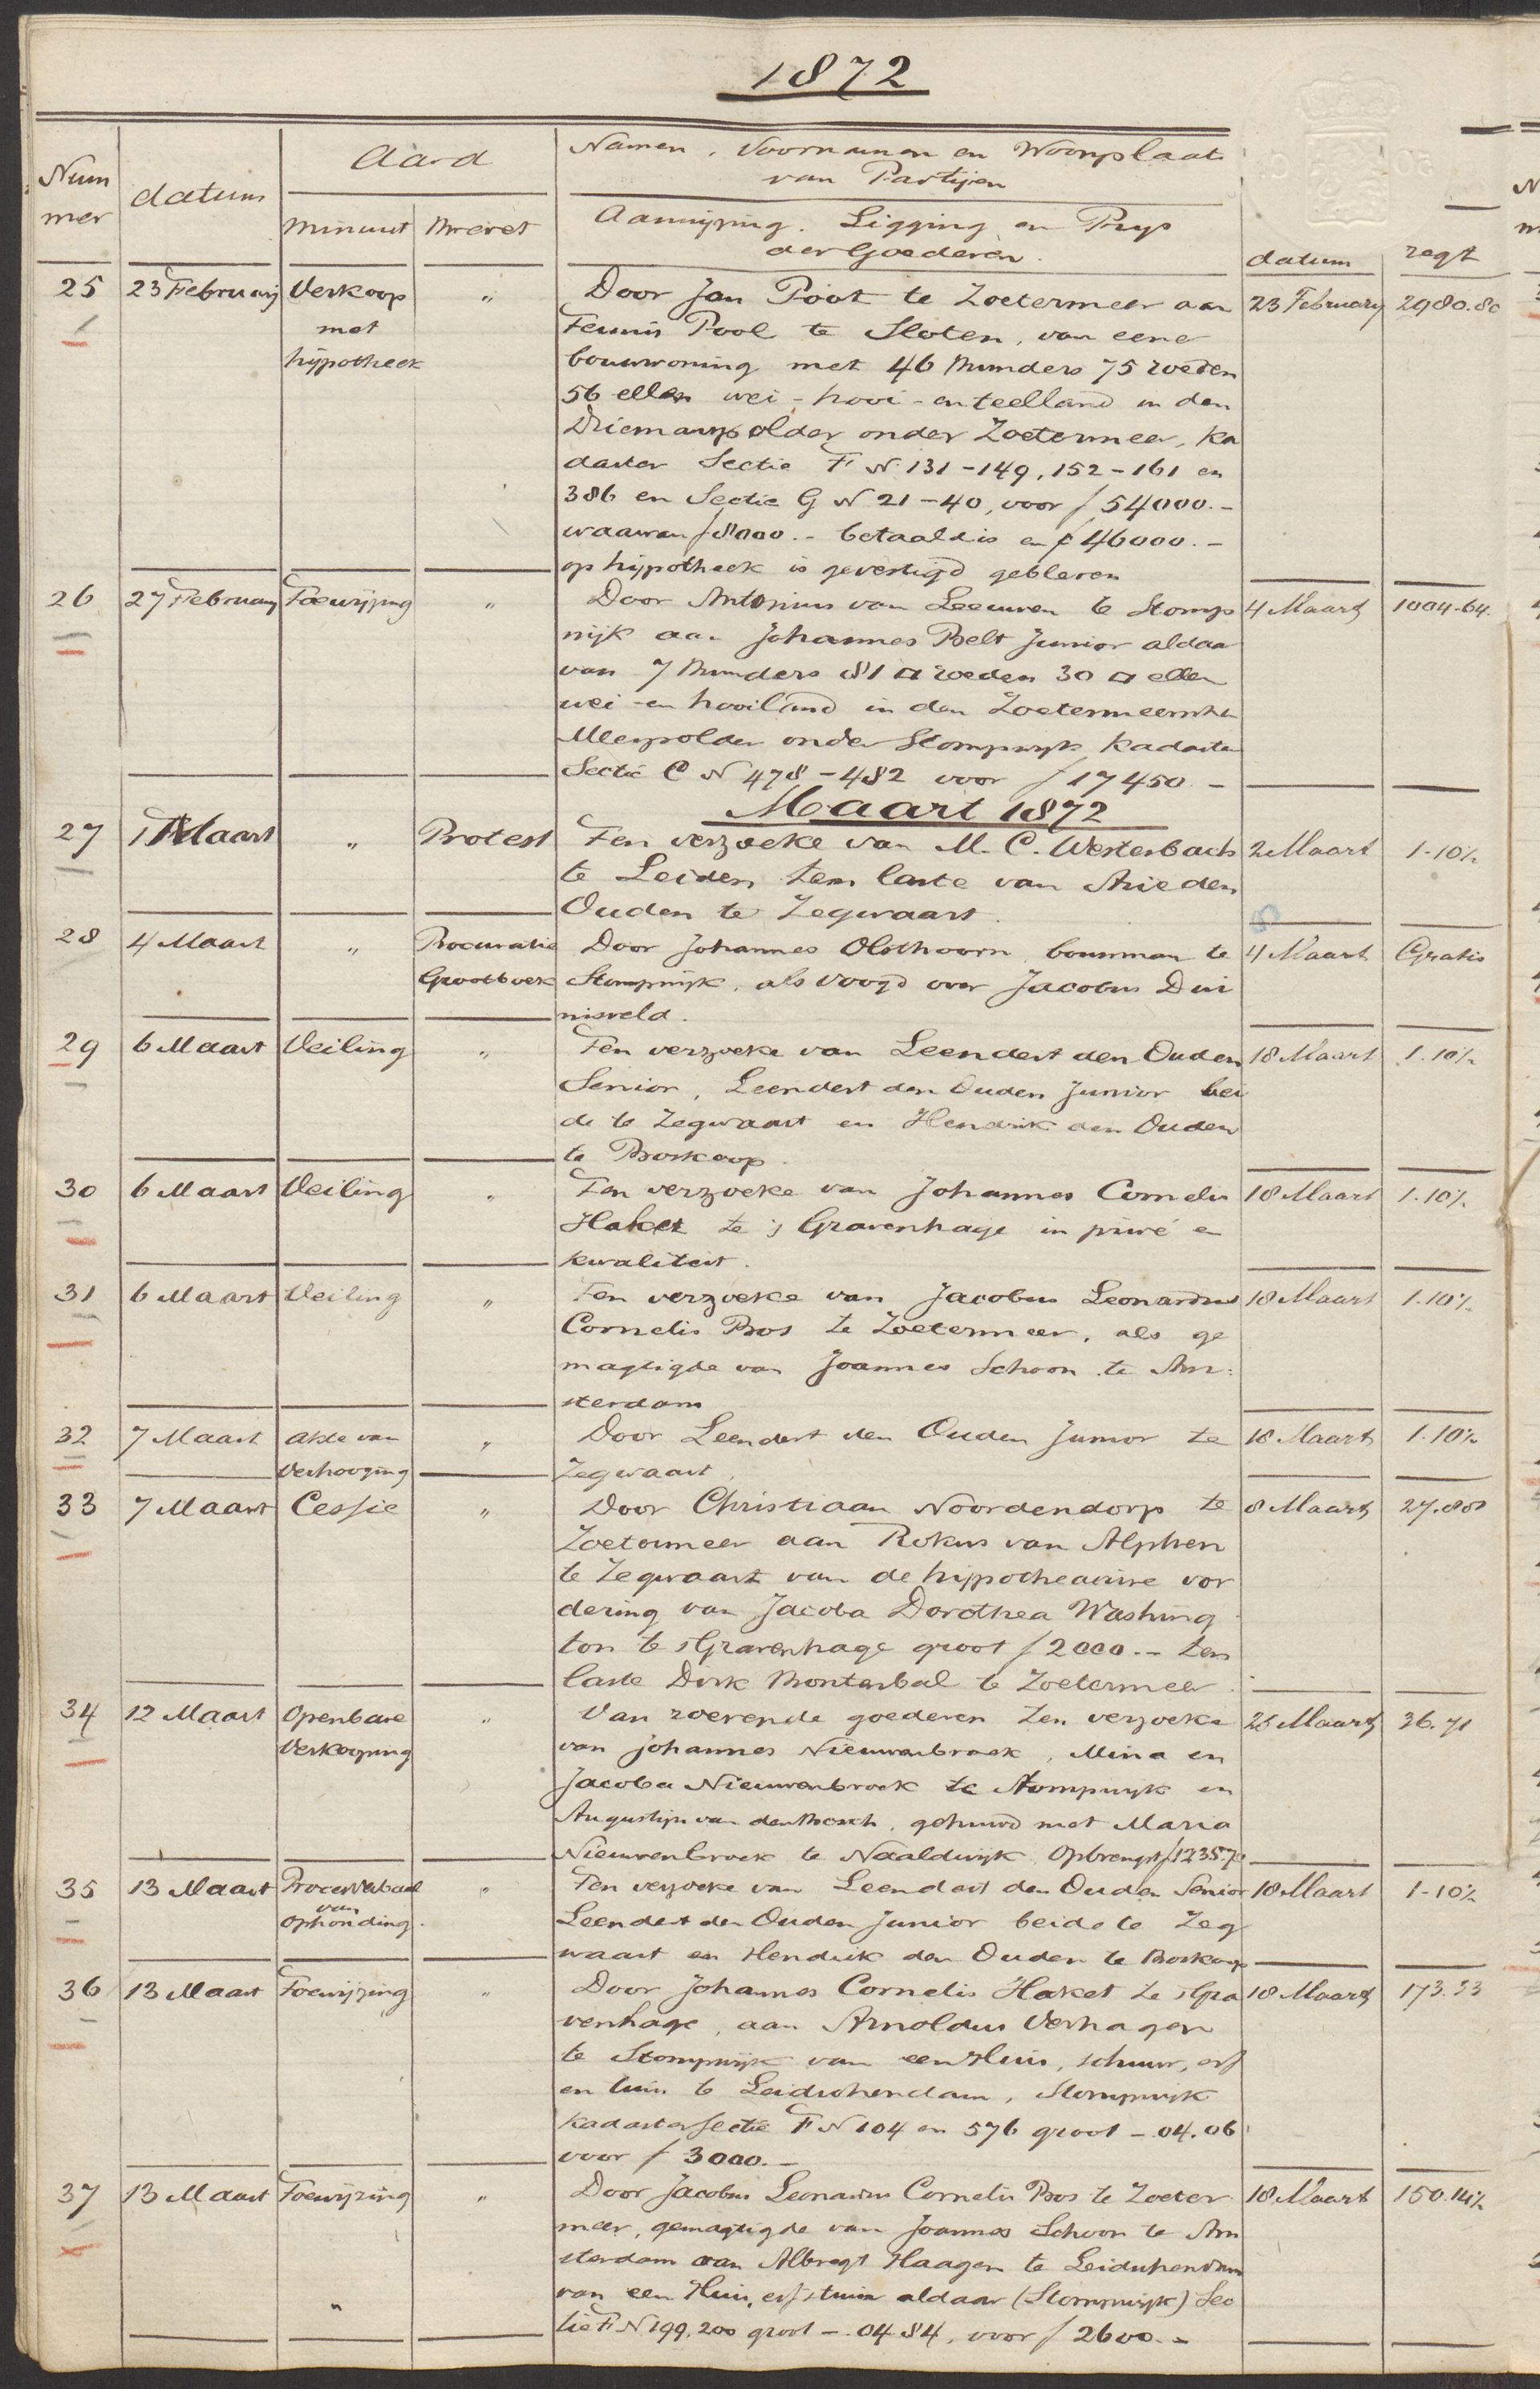 1872
Nummer datum Aard Namen, Voornamen en Woonplaats
van Partijen
minuut Brevet Aanwijzing, Ligging en Prijs
der Goederen. datum regt
25 23 Februarij Verkoop " Door Jan Poot te Zoetermeer aan 23 February 2980.80
met Teunis Pool te Sloten, van eene
hypotheek bouwwoning met 46 Bunders 75 roeden
56 ellen wei- hooi- en teelland in den
Driemanspolder onder Zoetermeer, Ka
daster Sectie F N 131-149, 152-161 en
386 en Sectie G N 21-40, voor f 54000.-
waarvan f 8000.- betaald is en f 46000.-
op hypotheek is gevestigd gebleven
26 27 February Toewijzing " Door Antonius van Leeuwen te Stomp 4 Maart 1004-64.
wijk aan Johannes Belt Junior aldaar
van 7 Bunders 81 □ roeden 30 □ ellen
wei- en hooiland in den Zoetermeersche
Meerpolder onder Stompwyk Kadaster
Sectie C N 478-482 voor f 17450.-
Maart 1872
27 1 Maart " Protest Ten verzoeke van M. C. Westerbach 2 Maart 1-10½
te Leiden ten laste van Arie den
Ouden te Zegwaart.
28 4 Maart " Procuratie Door Johannes Olsthoorn, bouwman te 4 Maart Gratis
Grootboek Stompwijk, als voogd over Jacobus Dui
nisveld.
29 6 Maart Veiling " Ten verzoeke van Leendert den Ouden 18 Maart 1.10½
Senior, Leendert den Ouden Junior bei
de te Zegwaart en Hendrik den Ouden
te Boskoop.
30 6 Maart Veiling " Ten verzoeke van Johannes Cornelis 18 Maart 1.10½
Haket te 's Gravenhage in privé en
kwaliteit.
31 6 Maart Veiling " Ten verzoeke van Jacobus Leonardus 18 Maart 1.10½
Cornelis Bos te Zoetermeer, als ge
magtigde van Joannes Schoon te Am:
sterdam
32 7 Maart Akte van " Door Leendert den Ouden Junior te 18 Maart 1.10½
Verhooging Zegwaart.
33 7 Maart Cessie " Door Christiaan Noordendorp te 8 Maart 27.80
Zoetermeer aan Rokus van Alphen
te Zegwaart van de hypothecaire vor
dering van Jacoba Dorothea Washing
ton te 's Gravenhage groot f 2000.- ten
laste Dirk Montenbal te Zoetermeer.
34 12 Maart Openbare " Van roerende goederen ten verzoeke 26 Maart 36.71
Verkooping van Johannes Nieuwenbroek, Mina en
Jacoba Nieuwenbroek te Stompwyk en
Augustijn van den Bosch, gehuwd met Maria
Nieuwenbroek te Naaldwijk. Opbrengst f 1235.70
35 13 Maart Proces Verbaal " Ten verzoeke van Leendert den Ouden Senior 18 Maart 1-10½
van
Ophouding. Leendert den Ouden Junior beide te Zeg
waart en Hendrik den Ouden te Boskoop
36 13 Maart Toewijzing " Door Johannes Cornelis Haket te 's Gra 18 Maart 173.53
venhage, aan Arnoldus Verhagen
te Stompwijk van een Huis, schuur, erf
en tuin te Leidschendam, Stompwijk
Kadaster Sectie F N 104 en 576 groot -.04.06
voor f 3000.-
37 13 Maart Toewijzing " Door Jacobus Leonardus Cornelis Bos te Zoeter 18 Maart 150.14½
meer, gemagtigde van Joannes Schoon te Am
sterdam aan Albregt Haagen te Leidschendam
" van een Huis, erf & tuin aldaar (Stompwijk) Sec
tie F N 199, 200 groot -.04 84, voor f 2600.-